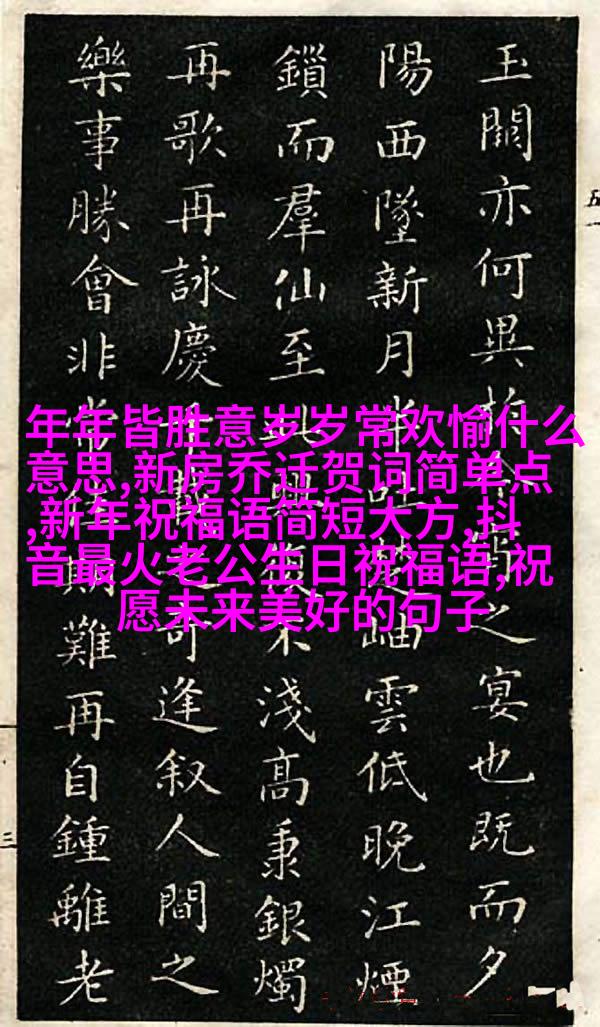 年年皆胜意岁岁常欢愉什么
意思,新房乔迁贺词简单点
,新年祝福语简短大方,抖
音最火老公生日祝福语,祝
愿未来美好的句子
玉闕亦何異於今宵之宴也既而夕
陽西墜新月半吐楚岫雲低晚江煙
鎖而羣仙至此興復不淺高秉銀燭
再歌再詠慶千載奇逢叙人間之
樂事勝會非常佳期難再自鍾離老
五一
三